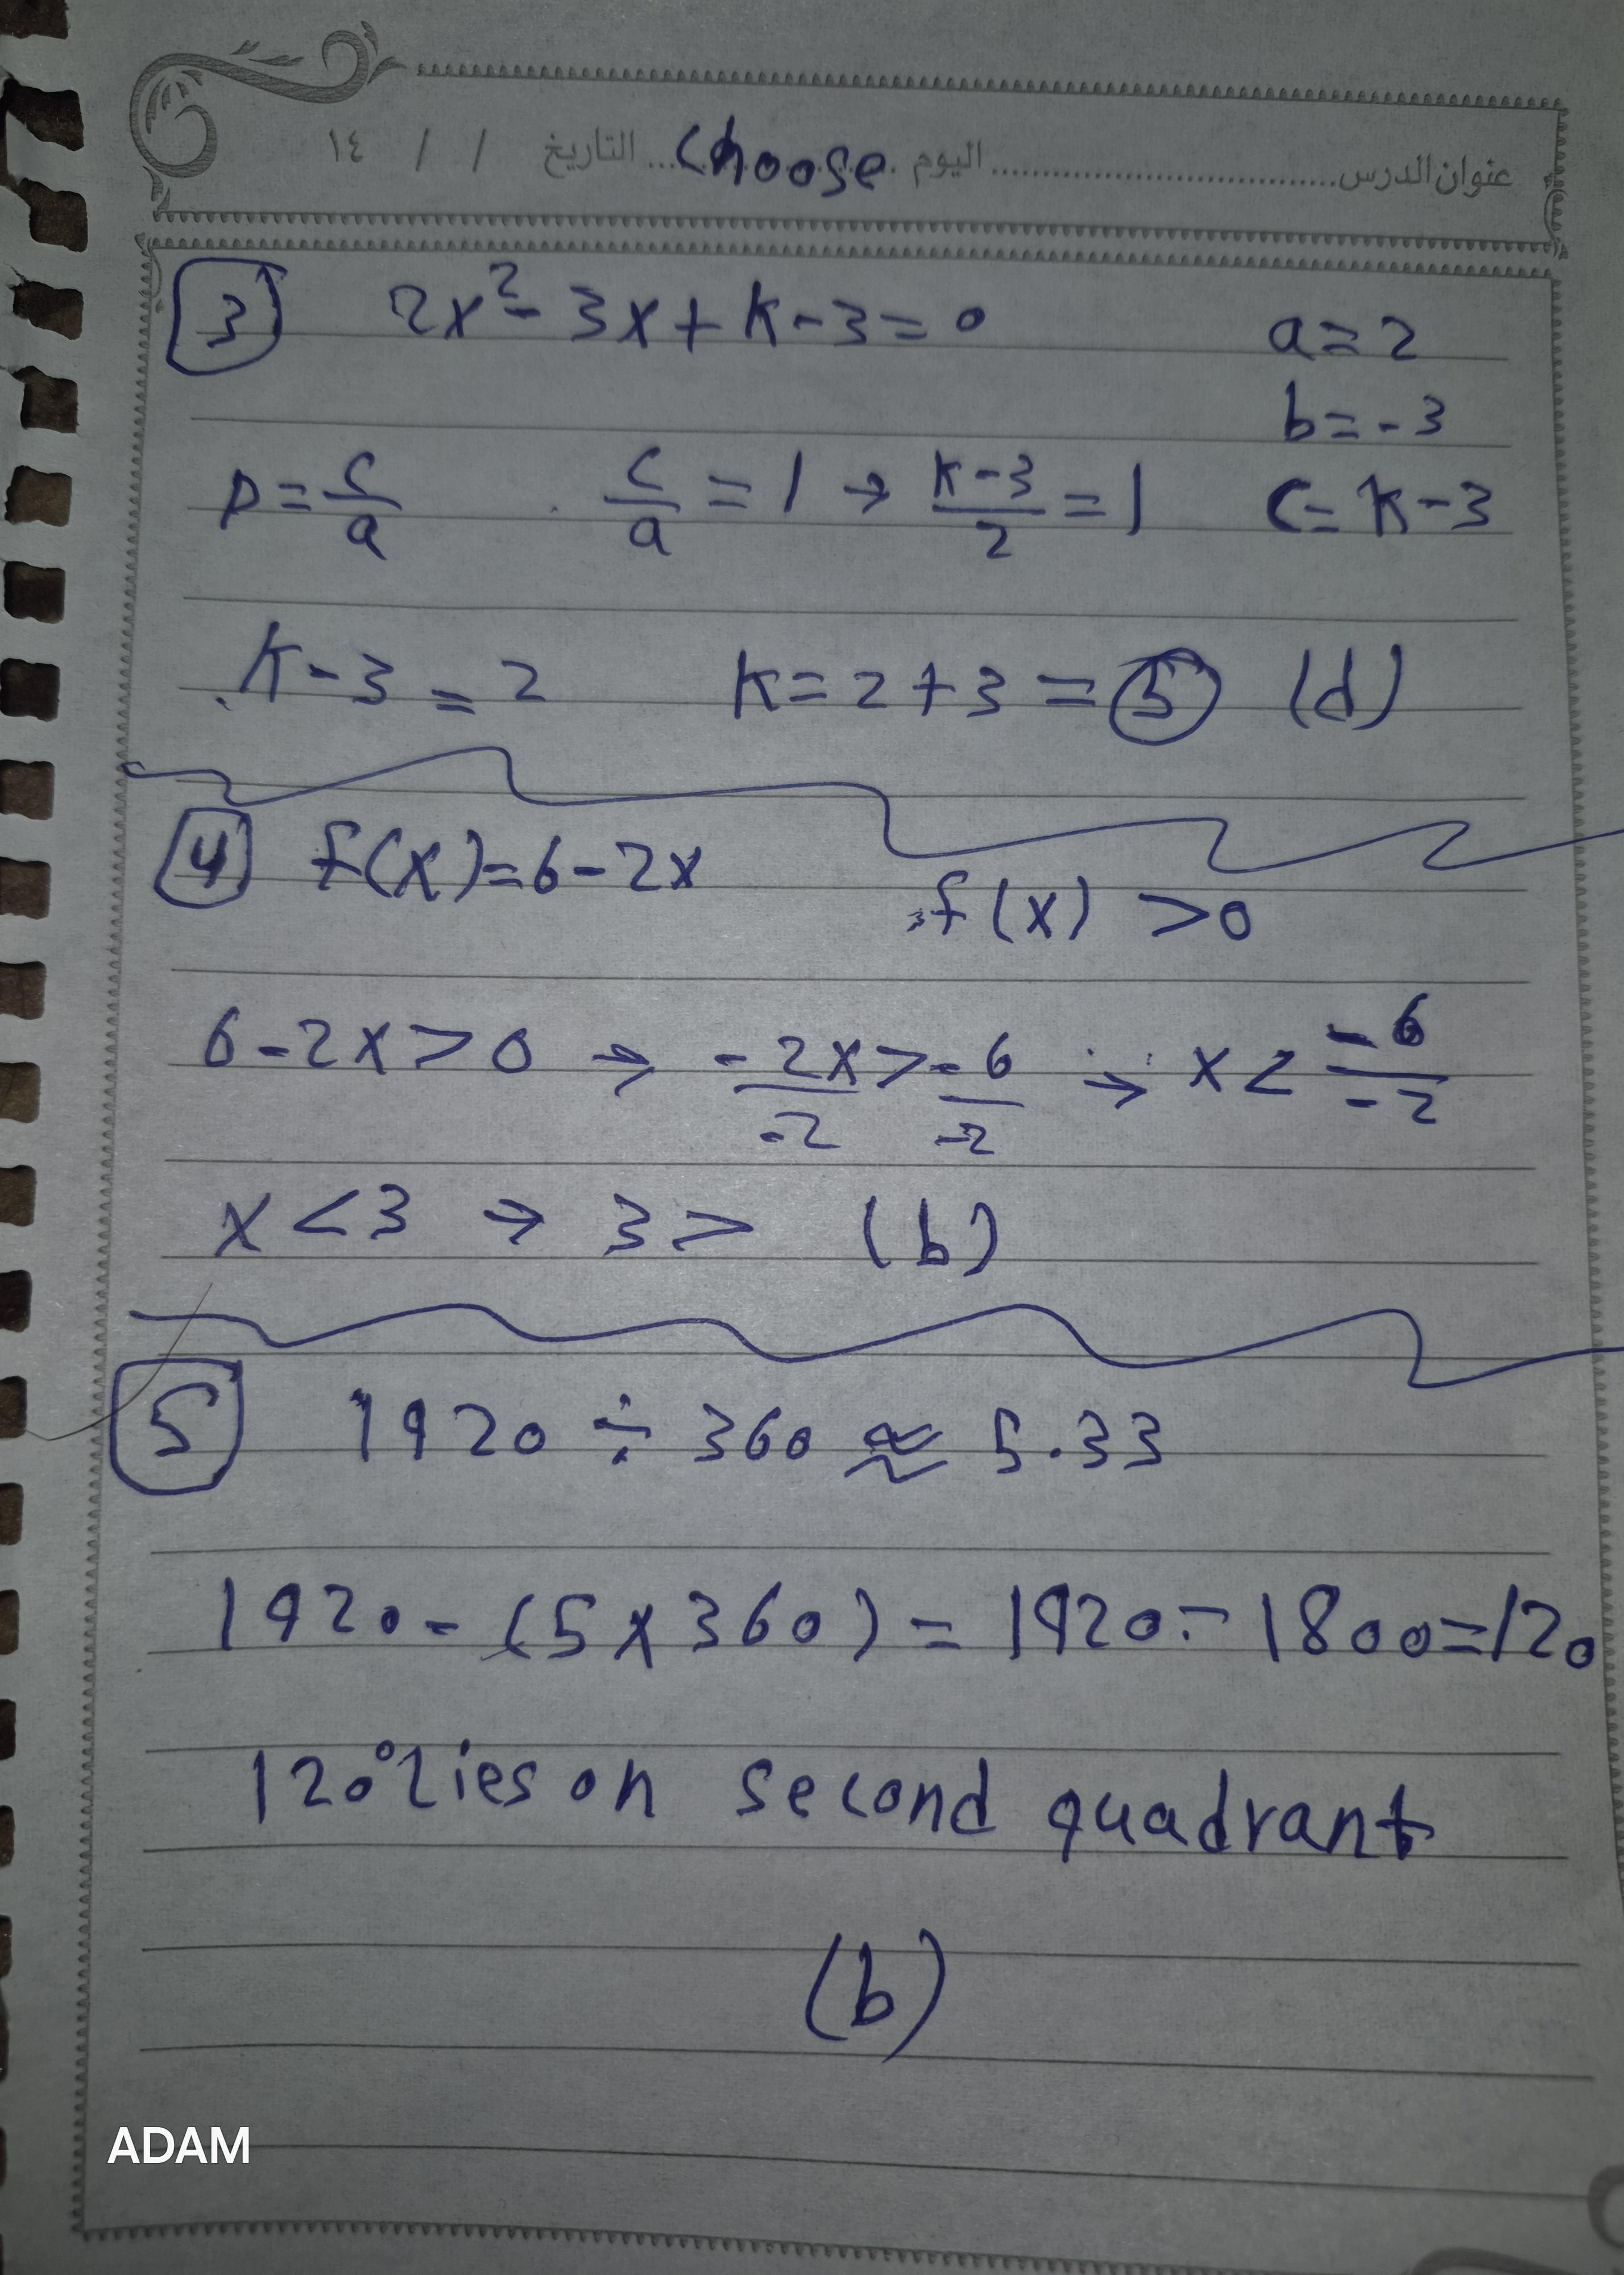 عنوان الدرس ........ اليوم ........ التاريخ / / ١٤
choose
3 2x² - 3x + k - 3 = 0 a = 2
b = -3
P = c/a c/a = 1 → k-3/2 = 1 c = k-3
k - 3 = 2 k = 2 + 3 = 5 (d)
4 f(x) = 6 - 2x f(x) > 0
6 - 2x > 0 → -2x/-2 > -6/-2 → x < -6/-2
x < 3 → 3 > (b)
5 1920 ÷ 360 ≈ 5.33
1920 - (5 x 360) = 1920 - 1800 = 120
120° lies on second quadrant
(b)
ADAM